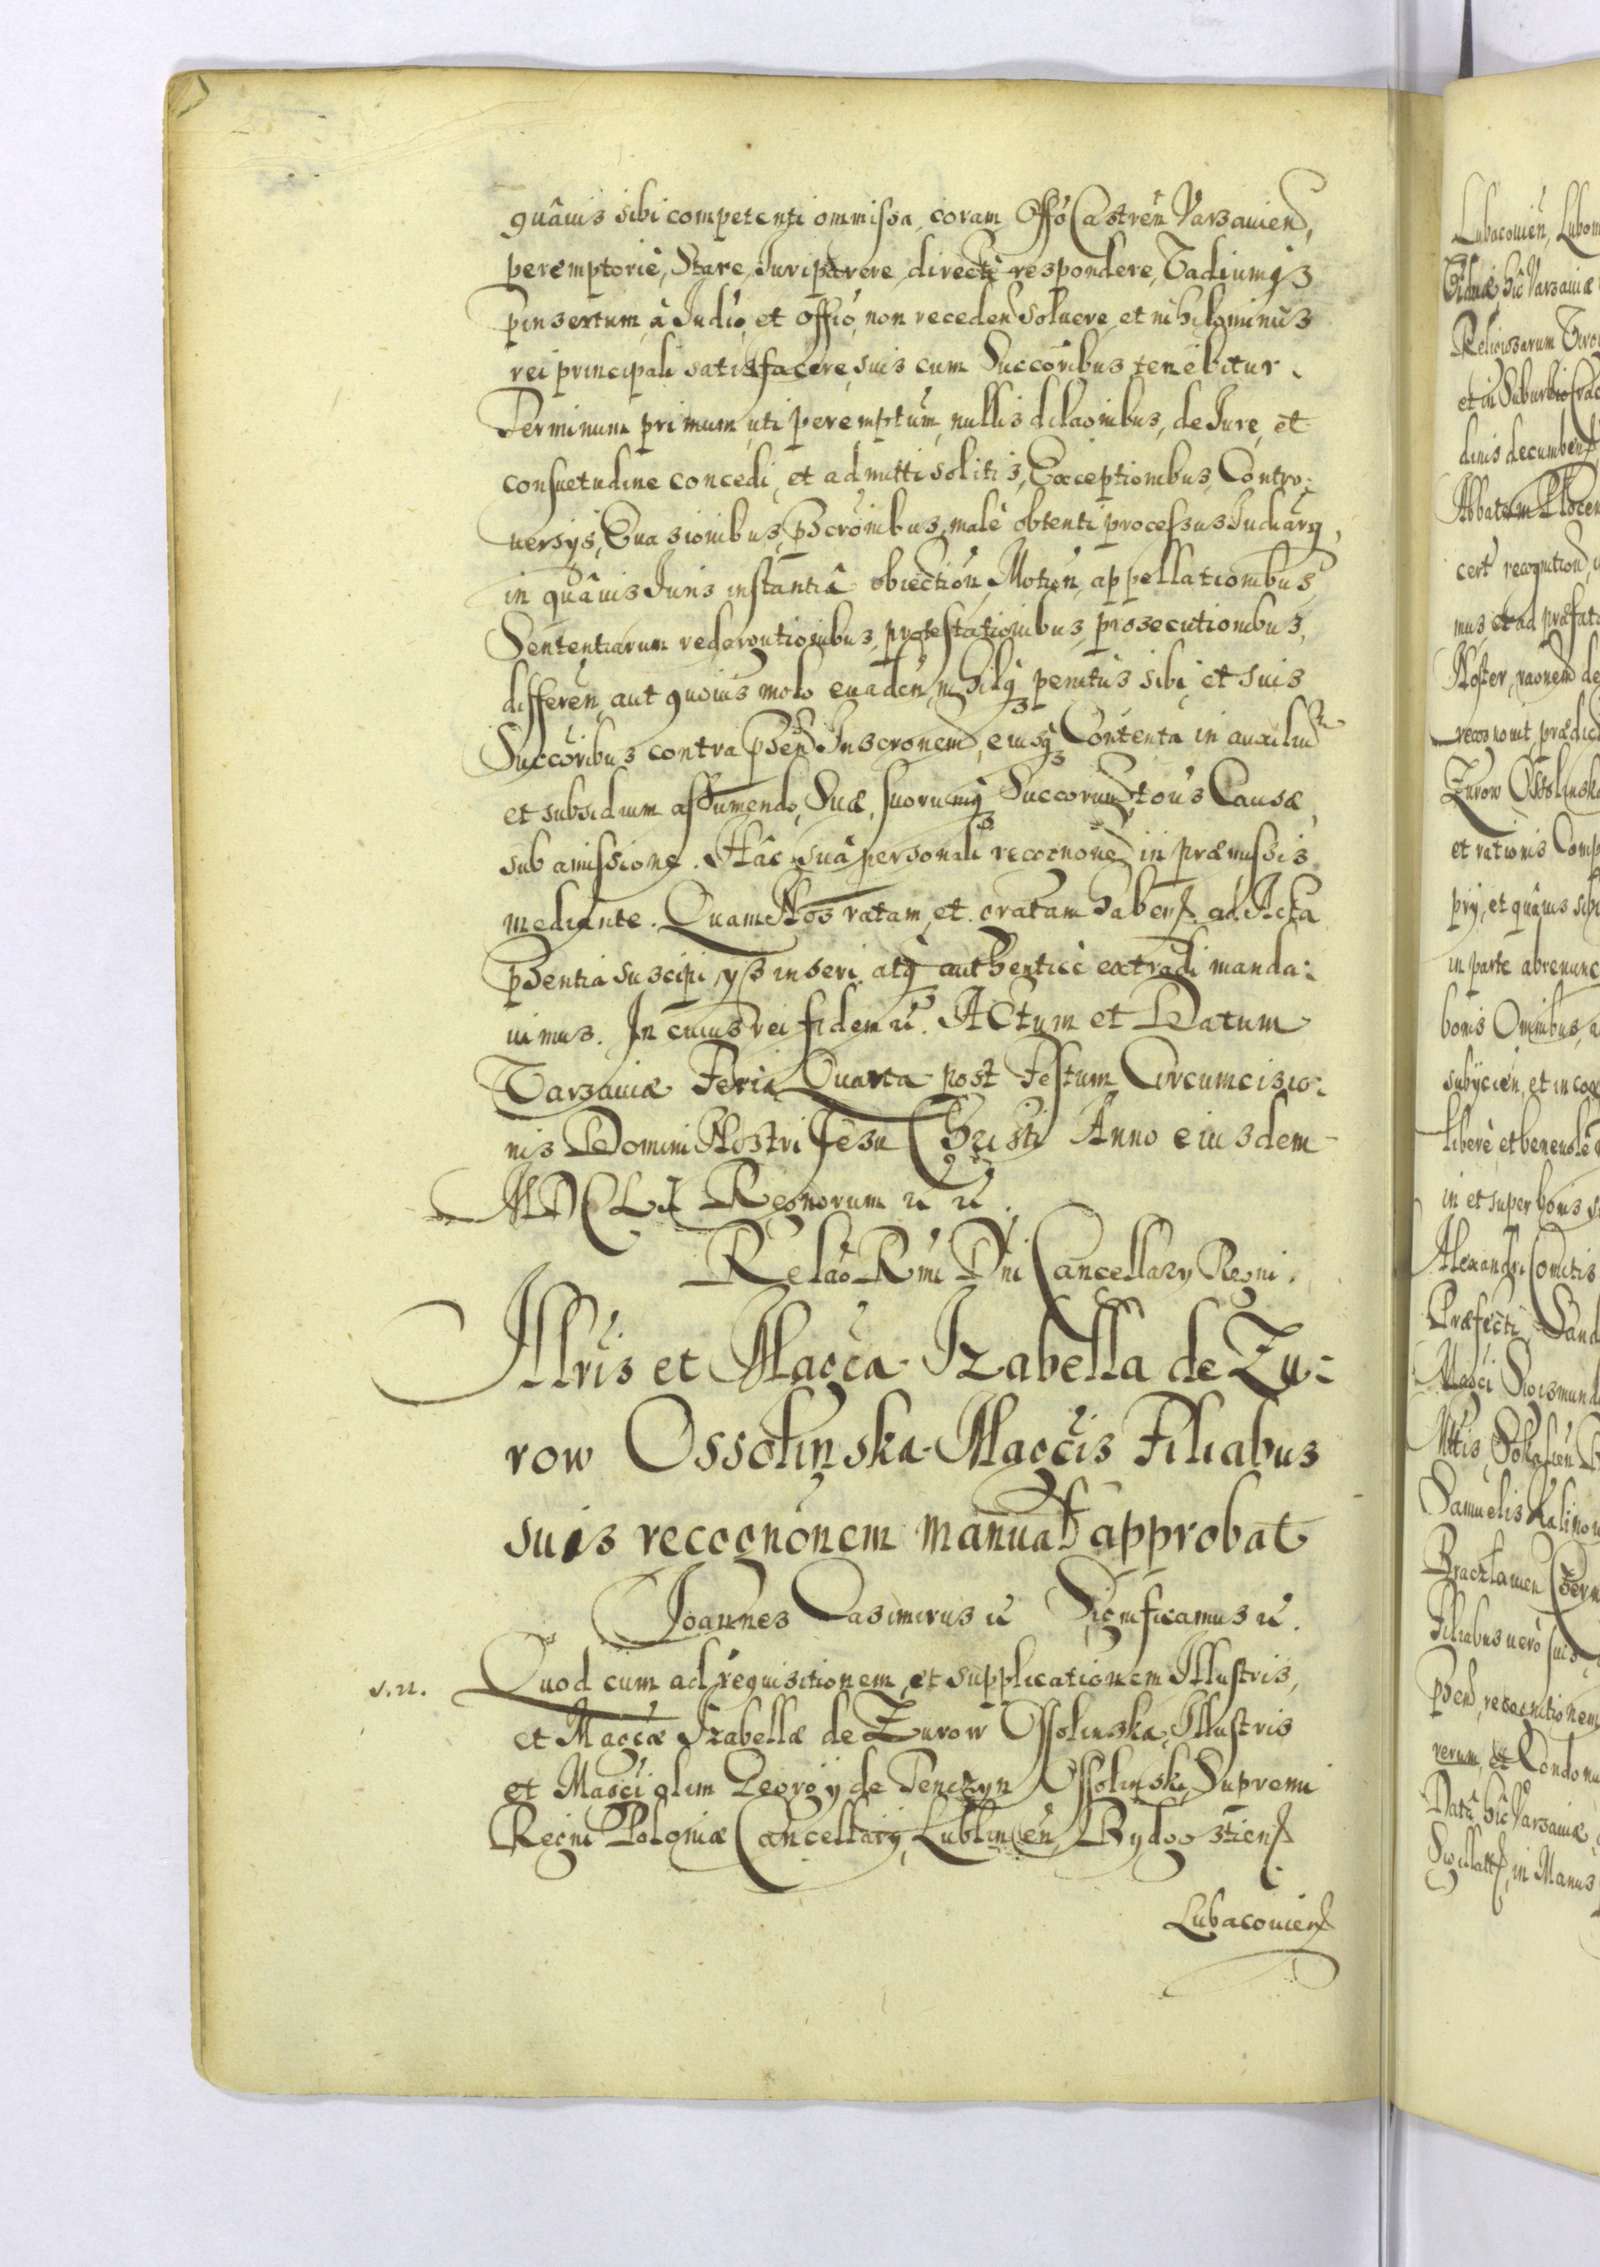 quâuis sibi competenti ommissa, coram Offo Castren Varsauien,
peremptoriè, Stare, Juri parere, directè respondere, Vadiumq3
pinsertum, à Judio, et Offio, non receden soluere, et nihilominus
rei principali satisfacere, suis cum Succoribus tenebitur.
Terminum primum, uti peremptum, nullis dilaonibus, de Jure, et
consuetudine concedi, et admitti solitis, Exceptionibus, Contro:
uersijs, Euasionibus, pscronibus, malè obtenti processus Judiarÿ,
in quâuis Juris instantiâ obiection, Motion, appellationibus,
Sententiarum redarguitionibus, protestationibus, prosecutionibus,
differen, aut quouis modo euaden, nihilq3 penitus sibi et suis
Succoribus contra psen Inscronem, eiusq3 Contenta in auxiliu
et subsidium assumendo, Suæ, suorumq3 Succorum, totius Causæ,
sub amissione. Hâc suâ personali recognone in præmissis
mediante. Quam Nos ratam, et gratam haben ad Acta
psentia suscipi, ijs inseri, atq3 authenticè extradi manda:
uimus. In cuius rei fidem &. Actum et Datum
Varsauiæ Feria Quarta post Festum Circumcisio:
nis Domini Nostri Jesu Christi Anno eiusdem
MDCLI Regnorum & &.
Relao Rmi Dni Cancellarÿ Regni.
Illris et Magca Izabella de Zu:
row Ossolinska Magcis Filiabus
suis recognonem manual approbat
Joannes Casimirus & Significamus &.
Quod cum ad requisitionem, et supplicationem Illustris,
et Magcæ Izabellæ de Zurow Ossolinska, Illustris
et Magci olim Georgÿ de Tenczyn Ossolinski, Supremi
Regni Poloniæ Cancellarÿ, Lublin en, Bydgostien
Lubacouien
Lubacouien, Lubom
et in Suburbio Crac
dinis decumben
cert recognition
mus et ad præfat
recognouit, prædic
Zurow Ossolinsk
et rationis Comp
prÿ, et quâuis sibi
in parte abrenunc
bonis Omnibus, a
liberè, et beneuolè
in et super bonis
Alexandri Comitis
Præfecti Sand
Magci Sigismund
Samuelis Kalinow
Filiabus uerò suis
psen, recognitionem
rerum, et Condona
Datu hic Varsauiæ
Sigillatt, in Manus